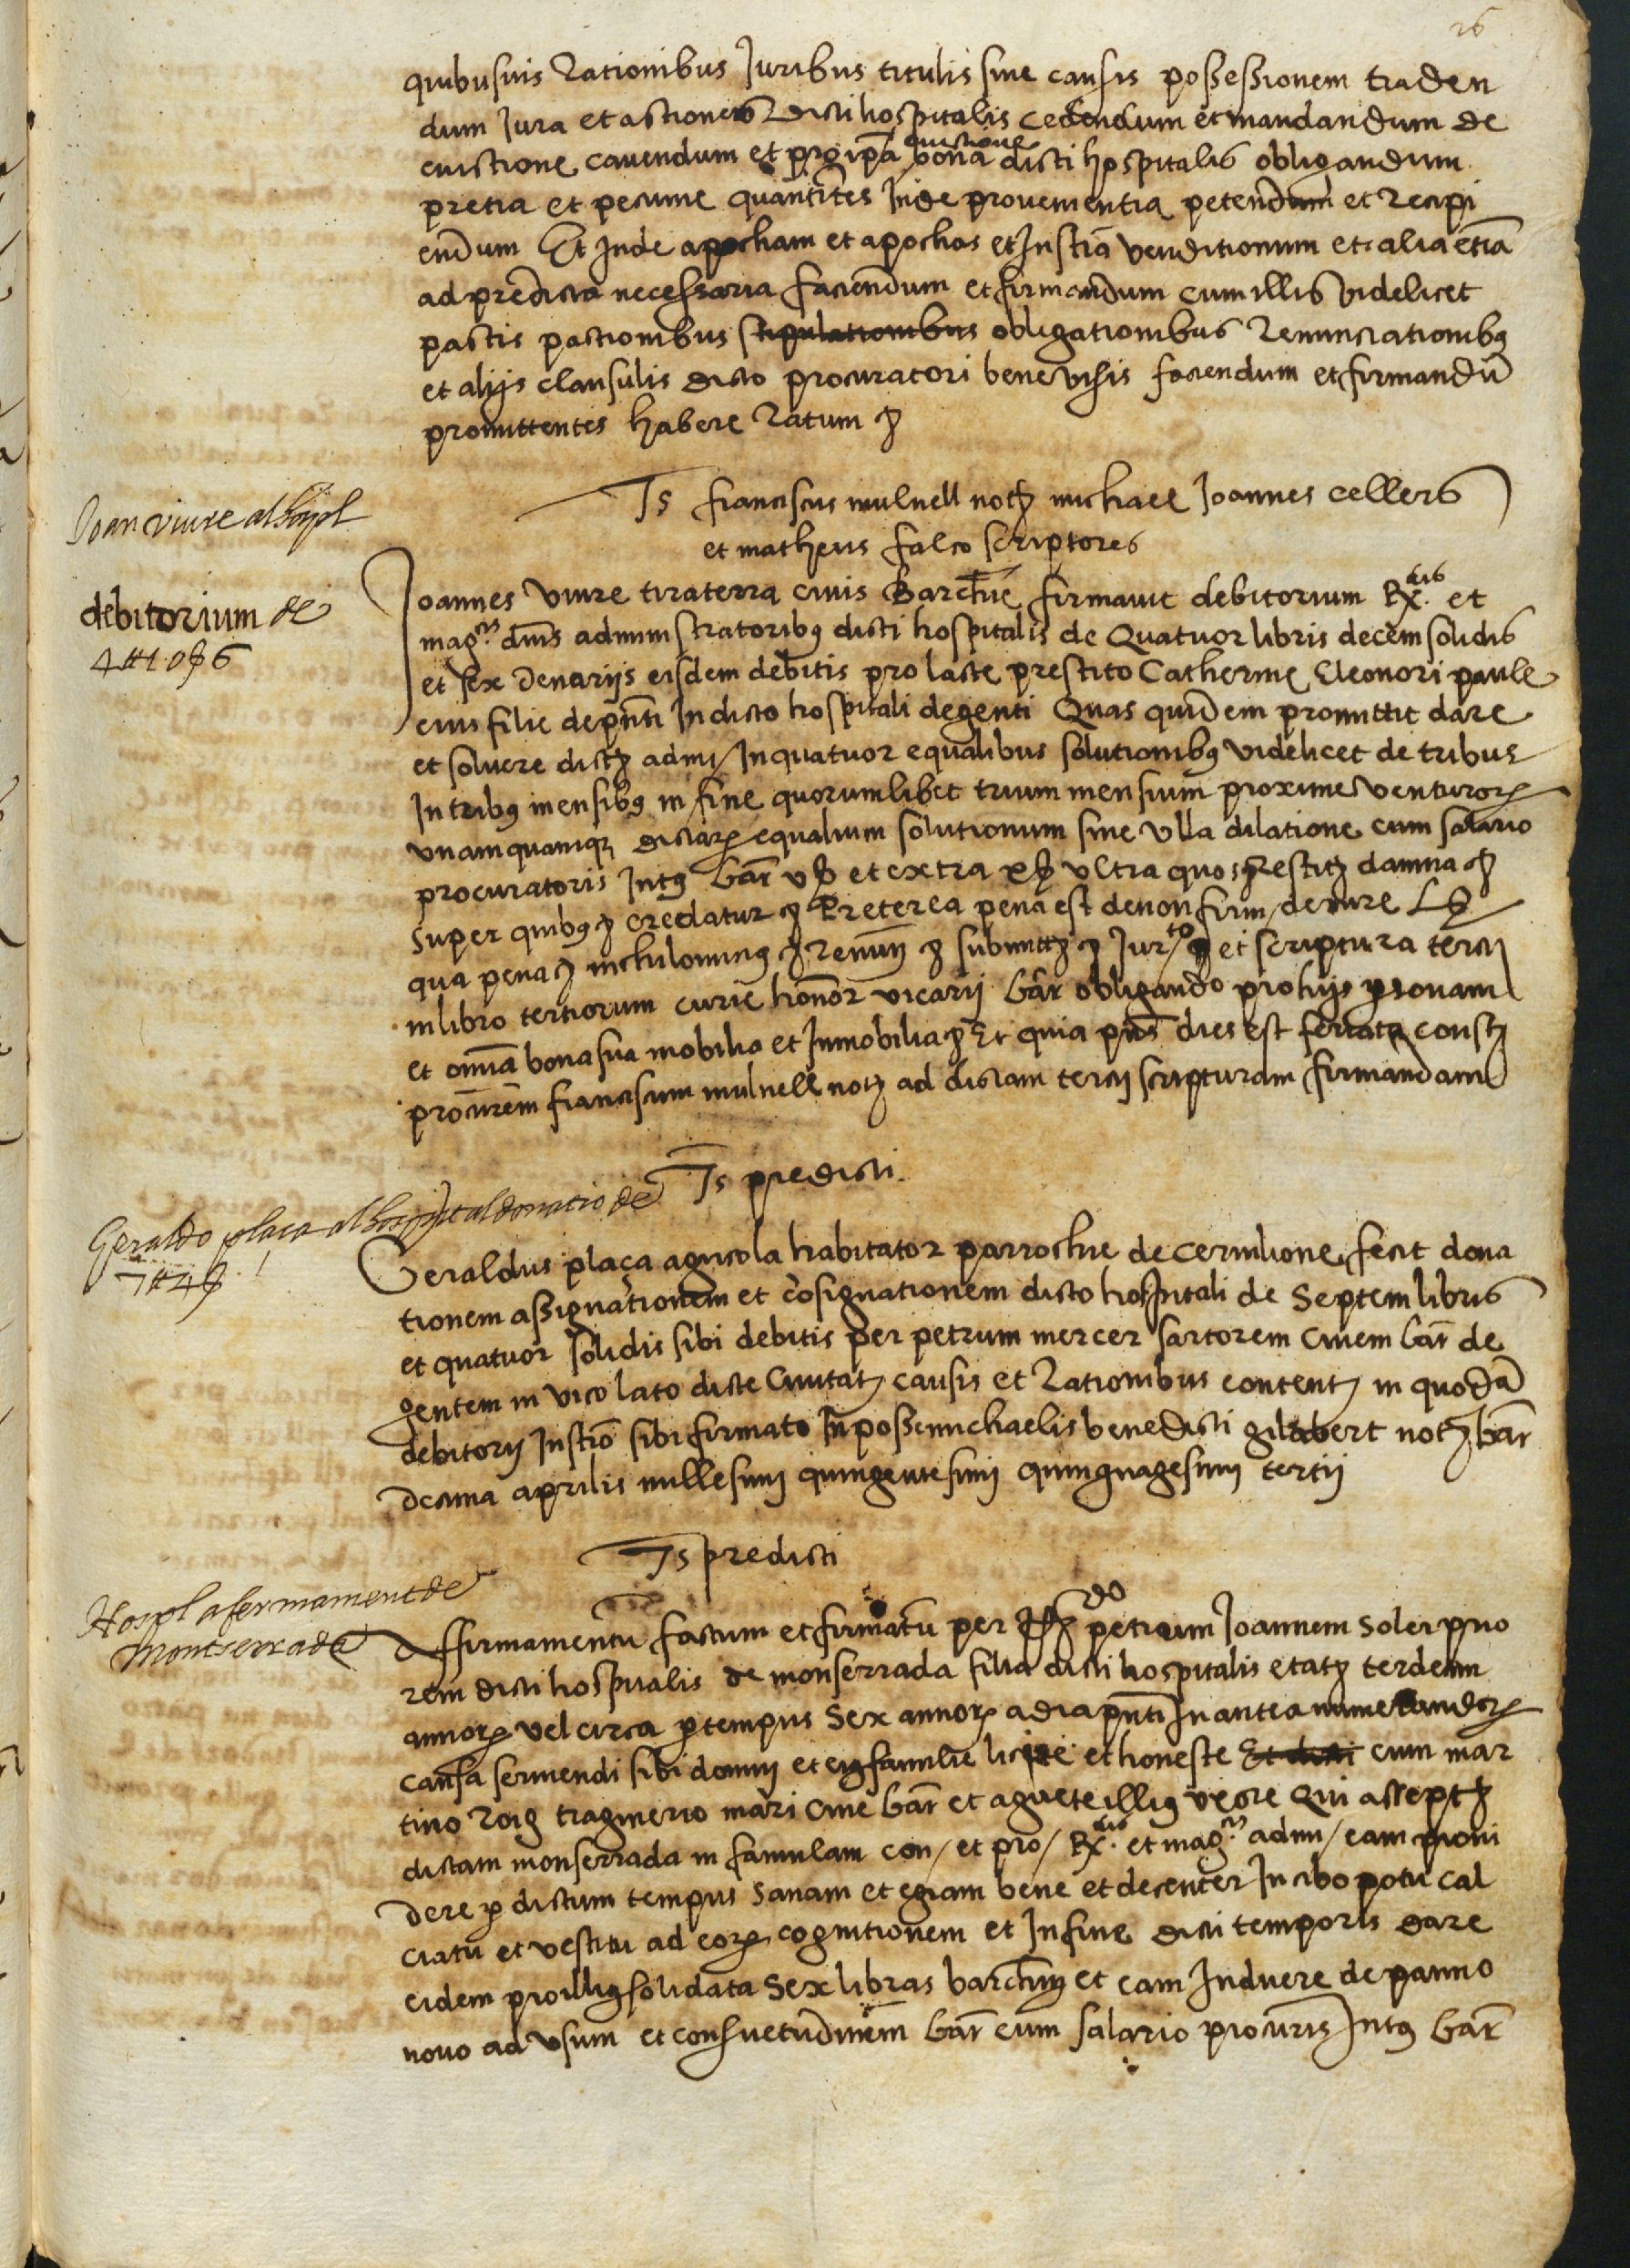 26
quibusuis rationibus Juribus titulis siue causis possessionem traden
dum Jura et actiones dicti hospitalis cedendum et mandandum de
euictione cauendum et pro ipā euictione bona dicti hospitalis obligandum
pretia et pecunie quantites Inde prouenientia petendum et recipi
endum Et Inde apocham et apochas et Instrā venditionum et alia etiā
ad predicta necessaria faciendum et firmandum cum illis videlicet
pactis pactionibus stipulationibus obligationibus renunciationibȝ
et alijs clausulis dicto procuratori bene visis faciendum et firmandū
promittentes habere ratum ꝫ
Ts franciscus mulnell notꝫ michael Joannes cellers
et matheus falco scriptores
Joan viure al hospl
debitorium de
4 ₶ 10 ß 6
Joannes viure tiraterra ciuis Barchne firmauit debitorium Rx.dis et
mag.cis dnis administratoribȝ dicti hospitalis de Quatuor libris decem solidis
et sex denarijs eisdem debitis pro lacte prestito Catherine Eleonori paule
eius filie de pnti In dicto hospitali degenti Quas quidem promittit dare
et soluere dictꝫ admi/ In quatuor equalibus solutionibȝ videlicet de tribus
In tribȝ mensibȝ in fine quorumlibet trium mensium proxime venturoꝝ
vnamquamqꝫ dictaꝝ equalium solutionum sine vlla dilatione cum salario
procuratoris Intȝ bar̄ v ß et extra x ß vltra quos ꝫ restitꝫ damna ꝫ
super quibȝ ꝫ credatur ꝫ Preterea pena est de non firm/ de iure L ß
qua pena ꝫ nichilominȝ ꝫ renun̄ ꝫ submittꝫ ꝫ Jur.to ꝫ et scriptura tercij
in libro tertiorum curie honor̄ vicarij bar̄ obligando pro hijs ꝑsonam
et omnia bona sua mobilia et Inmobilia ꝫ Et quia pns dies est feriata constꝫ
procurem franciscum mulnell notꝫ ad dictam tercij scripturam firmandam
Ts predicti.
Geraldo plaça al hospital donatio de
7 ₶ 4 ß
Geraldus plaça agricola habitator parrochie de ceruilione fecit dona
tionem assignationem et cōsignationem dicto hospitali de Septem libris
et quatuor solidis sibi debitis per petrum mercer sartorem ciuem bar̄ de
gentem in vico lato dicte Ciuitatꝫ causis et rationibus contentꝫ in quodā
debitorij Instrō sibi firmato In posse michaelis benedicti gilabert notꝫ bar̄
decima aprilis millesimi quingentesimi quinquagesimi tertij
Ts predicti
Hospl afermament de
Montserrada
Affirmamentū factum et firmatū per Rx.do petrum Joannem Soler prio
rem dicti hospitalis de monserrada filia dicti hospitalis etatꝫ terdecim
annoꝝ vel circa ꝑ tempus Sex annoꝝ a dia pnti In antea numerandoꝝ
causa seruiendi sibi domui et eiȝ familie licite et honeste Et dicti cum mar
tino roig traginerio mari ciue bar̄ et agnete illiȝ vxore Qui acceptꝫ
dictam monserrada in famulam con/ et pro/ Rx.dis et mag.cis admi/ eam proui
dere ꝑ dictum tempus sanam et egram bene et decenter In cibo potu cal
ciatu et vestitu ad eoꝝ cognitionem et In fine dicti temporis dare
eidem pro illiȝ solidata Sex libras barchnȝ et eam Induere de panno
nouo ad vsum et consuetudinem bar̄ cum salario procuris Intȝ bar̄